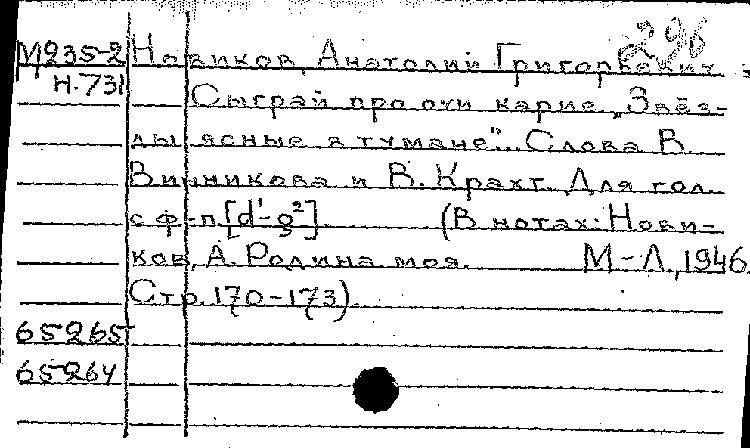 296
М235-2 Новиков, Анатолий Григорьевич
Н.731 Сыграй про очи карие. „Звёз-
ды ясные в тумане". Слова В.
Винникова и В. Крахт. Для гол.
с ф-п [d'-g²]. (В нотах: Нови-
ков, А. Родина моя. М-Л., 1946.
Стр. 170-173).
65265
65264